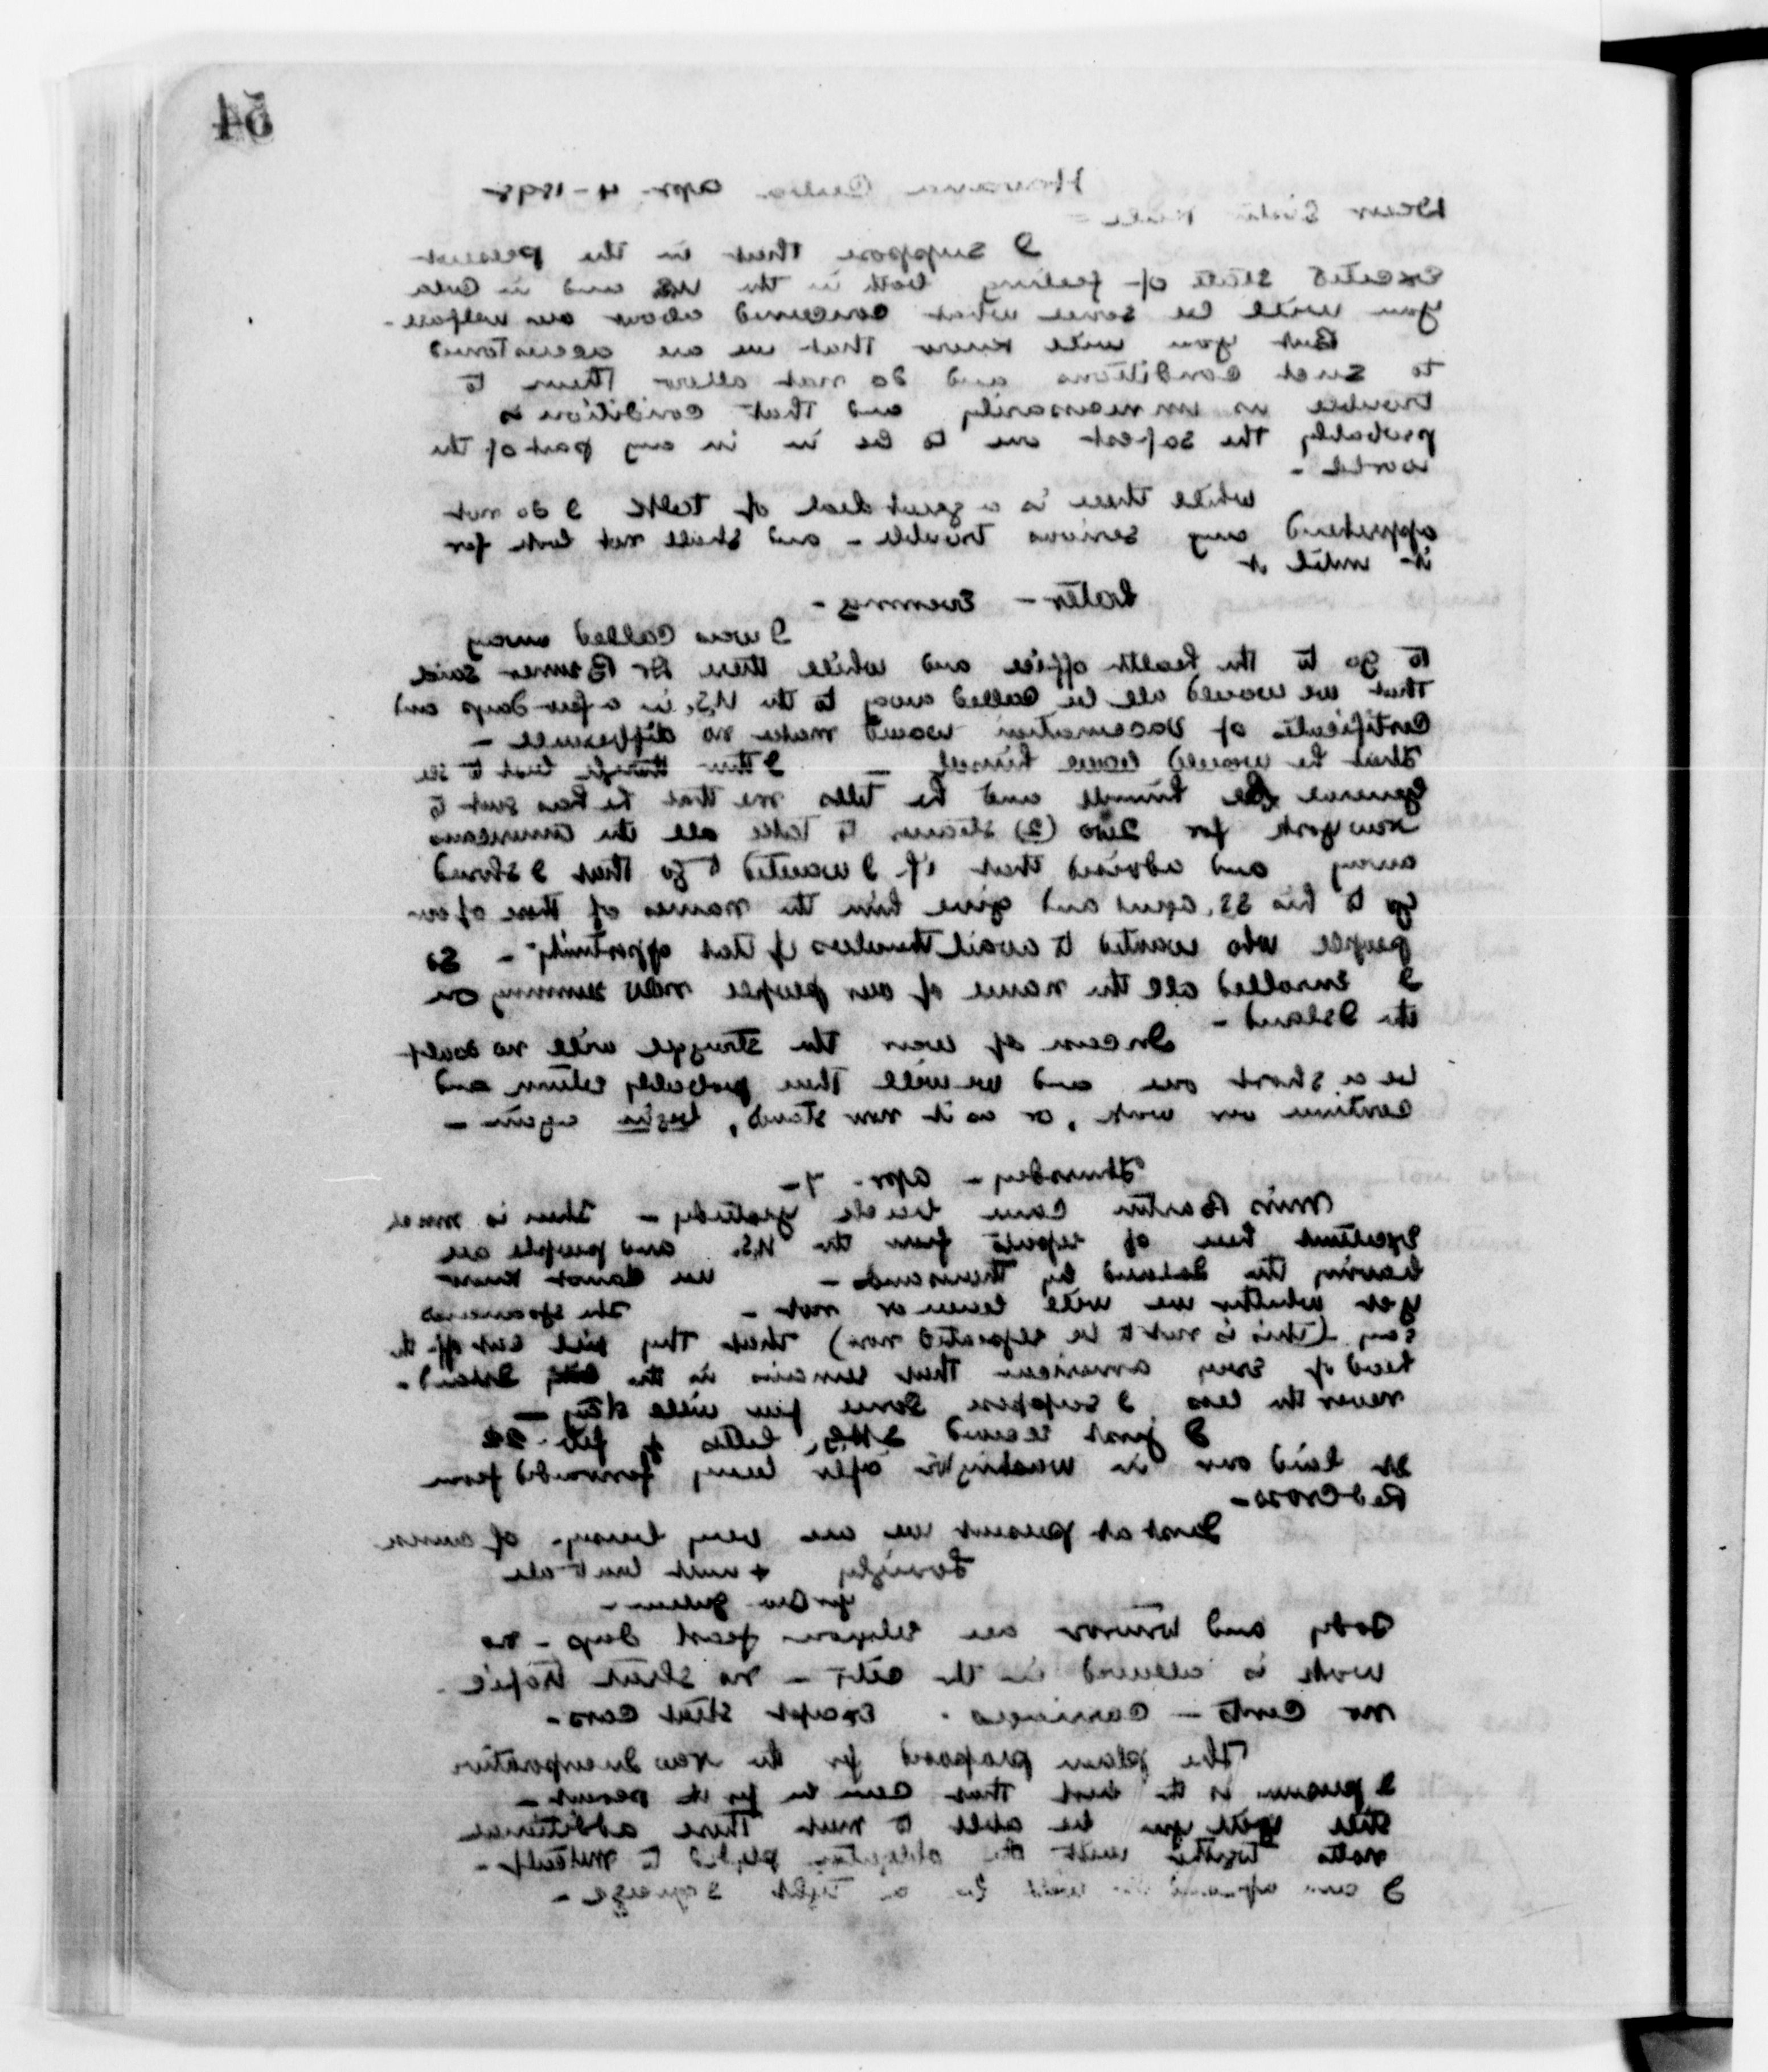 54
Havana Cuba. Apr. 4-1898
Dear Sister
I suppose that in the present
excited state of feeling both in the US and in Cuba
you will be some what concerned about our welfare-
But you will know that we are accustomed
to such conditions and do not allow them to
trouble us unnecessarily and that condition is
probably the safest one to be in in any part of the
world-
While there is a great deal of talk I do not
apprehend any serious trouble - and shall not look for
it until it
Later - Evening-
I was called away
to go to the health office and while there Dr Bruner said
that we would all be called away to the U.S. in a few days and
certificate of vaccination would make no difference -
That he would leave himself - I then to see
General Lee himself and he tells me that he has sent to
New York for two (2) steamers to take all the Americans
away and advised that if I wanted to go that I should
go to his SS. agent and give him the names of those of our
people who wanted to avail themselves of that opportunity - So
I enrolled all the names of our people now on
the Island-
In case of war the struggle will no doubt
be a short one and we will then probably return and
continue our work, or as it now stands, begin again -
Thursday - Apr. 7-
Miss Barton came back yesterday - There is much
excitement here of reports from the U.S. and people are
leaving the Island by thousands - We cannot know
yet whether we will leave or not - The Spaniards
say (this is not to be repeated now) that they will cut off the
head of every American that remains in the Island-
never the less I suppose some few will stay -
I just received letter of Feb. 22
It laid over in Washington after being forwarded from
Red Cross-
Just at present we are very busy. Of course
Lovingly + with love to all
yr Bro
Today and tomorrow are religious feast days - no
work is allowed in the city - no street traffic-
no carts - carriages. Except street cars-
The plan proposed for the new Incorporation
I presume is the best that can be for the present -
Still will you be able to meet these additional
notes together with the obligation to Metcalf-
I am afraid it will be a tight squeeze -